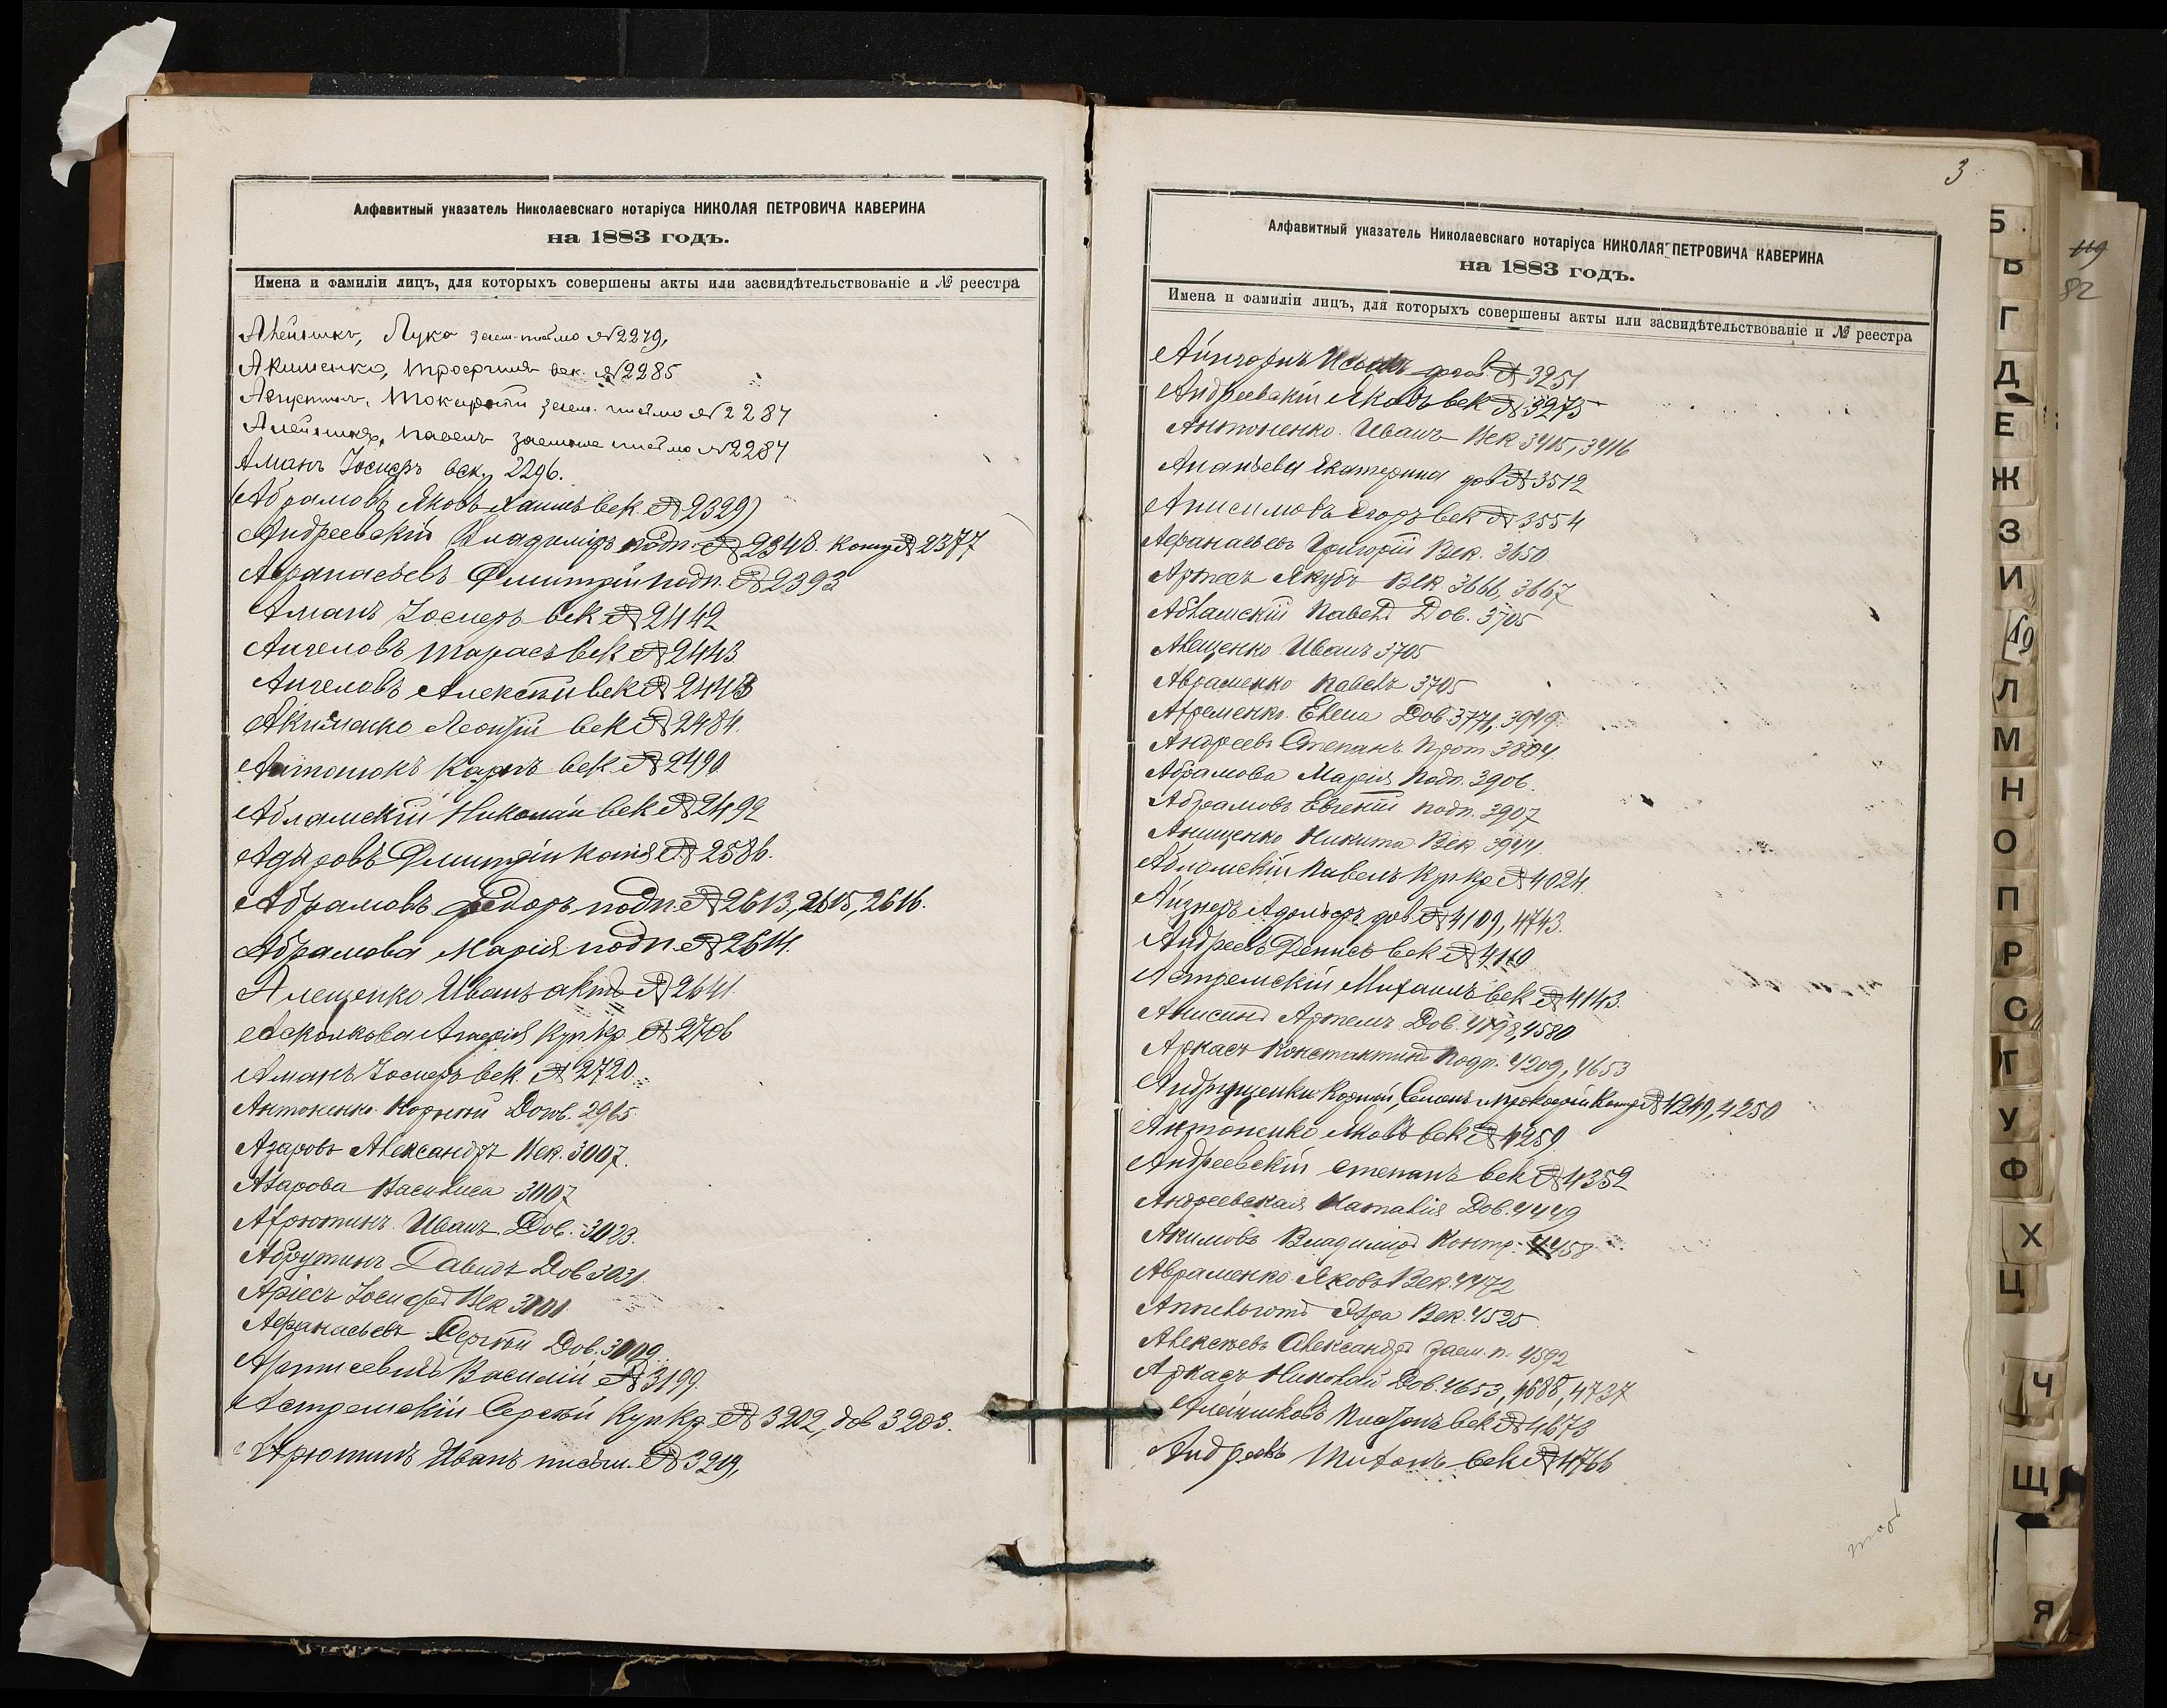 Алфавитный указатель Николаевскаго нотаріуса НИКОЛАЯ ПЕТРОВИЧА КАВЕРИНА
на 1883 годъ.
Имена и фамиліи лицъ, для которыхъ совершены акты или засвидѣтельствованіе и № реестра
Лука заем. письмо №2279,
Акименко, Трофимъ век. №2285
заем. письмо №2287
Павелъ заемное письмо №2287
Аманъ Іосифъ век. 2296.
(Абрамовъ Яковъ Хаимъ век. №2329)
Андреевскій Владиміръ подп. №2348. №2377
Афанасьевъ Дмитрій подп. №2393
Аманъ Іосифъ век №2442
Ангеловъ Тарасъ век №2443
Ангеловъ Алексѣй век №2443
Акименко Леонтій век №2484.
Антонюкъ Карпъ век. №2490
Абламскій Николай век №2492
Дмитрій копія №2586.
Абрамовъ Федоръ подп. №2613, 2615, 2616.
Абрамова Марія подп. №2614.
Алещенко Иванъ актъ №2641.
Куп кр. №2706
Аманъ Іосифъ век. №2720.
Антоненко Корнѣй Догов. 2965.
Азаровъ Александръ Век. 3007.
Азарова Василиса 3007
Иванъ Дов. 3023.
Абрутинъ Давидъ Дов 3031.
Аріесъ Іосифъ Век
Афанасьевъ Сергѣй Дов.
Василій №3199.
Астремскій Сергѣй Куп Кр. №3202, дов 3203.
Арютинъ Иванъ письм. №3219,
3
Алфавитный указатель Николаевскаго нотаріуса НИКОЛАЯ ПЕТРОВИЧА КАВЕРИНА
на 1883 годъ.
Имена и фамиліи лицъ, для которыхъ совершены акты или засвидѣтельствованіе и № реестра
Айнгорнъ №3251
Андреевскій Яковъ век №3275
Антоненко Иванъ Век 3415, 3416
Ананьева Екатерина дов №3512
Анисимовъ Егоръ век №3554
Афанасьевъ Григорій Век. 3650
Якубъ Век 3666, 3667
Абламскій Павелъ Дов. 3705
Алещенко Иванъ 3705
Авраменко Павелъ 3705
Елена Дов. 3771, 3949.
Андреевъ Степанъ Прот 3804.
Абрамова Марія подп. 3906.
Абрамовъ Евгеній подп. 3907
Анищенко Никита Век 3944.
Абламскій Павелъ Куп кр №4024.
Айзнеръ Адольфъ дов. №4109, 4743.
Андреевъ Денисъ век №4110
Астремскій Михаилъ век №4143.
Артемъ Дов. 4198, 4580
Аркасъ Константинъ подп. 4209, 4653
Андрущенки Корнѣй, Семенъ и Прокофій №4249, 4250
Антоненко Яковъ век №4259
Андреевскій Степанъ век №4352
Андреевская Наталія Дов. 4449
Акимовъ Владиміръ Контр. 4458
Авраменко Яковъ Век. 4472
Век. 4525
Алексѣевъ Александръ заем. п. 4592
Аркасъ Николай Дов. 4653, 4688, 4737
Алейниковъ Платонъ век №4673
Андреевъ Титонъ век №4766
119
82
Б
В
Г
Д
Е
Ж
З
И
Л
М
Н
О
П
Р
С
У
Ф
Х
Ц
Ч
Щ
Я